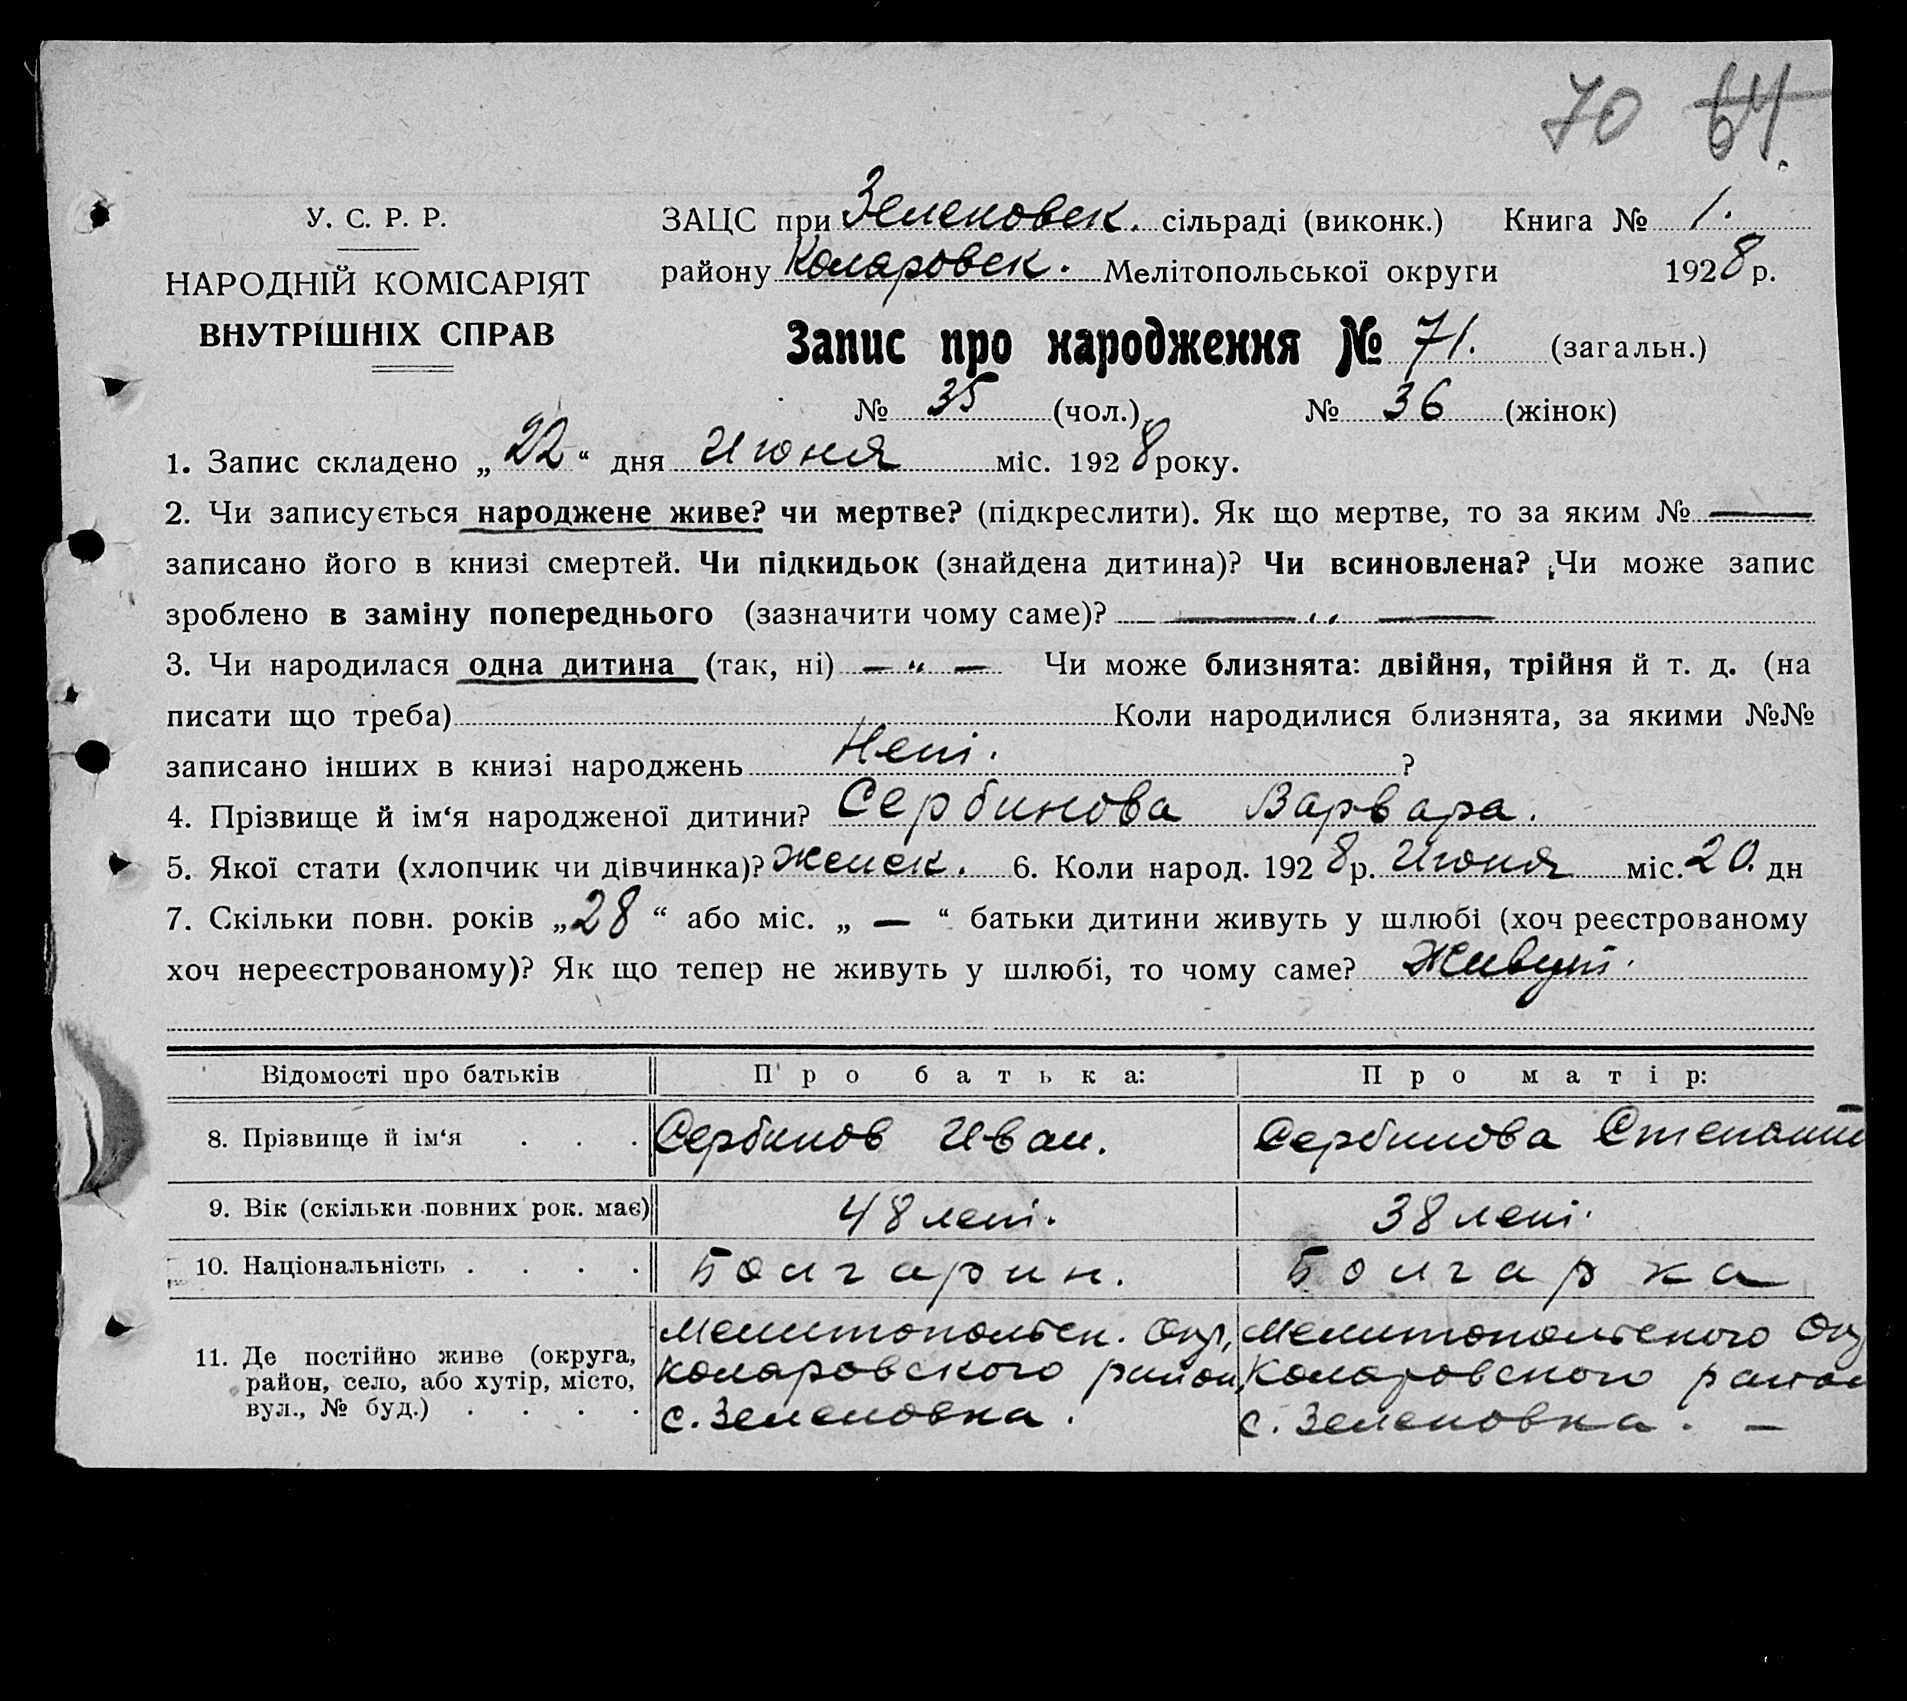 70 64.
У. С. Р. Р.
НАРОДНІЙ КОМІСАРІЯТ
ВНУТРІШНІХ СПРАВ
ЗАЦС при Зеленовск. сільраді (виконк.) Книга № 1.
району Коларовск. Мелітопольської округи 1928 р.
Запис про народження № 71. (загальн.)
№ 35 (чол.) № 36 (жінок)
1. Запис складено „22“ дня Июня міс. 1928 року.
2. Чи записується народжене живе? чи мертве? (підкреслити). Як що мертве, то за яким № —
записано його в книзі смертей. Чи підкидьок (знайдена дитина)? Чи всиновлена? Чи може запис
зроблено в заміну попереднього (зазначити чому саме)? — „ —
3. Чи народилася одна дитина (так, ні) — „ — Чи може близнята: двійня, трійня й т. д. (на
писати що треба) Коли народилися близнята, за якими №№
записано інших в книзі народжень Нет. ?
4. Прізвище й ім‘я народженої дитини? Сербинова Варвара.
5. Якої стати (хлопчик чи дівчинка)? Женск. 6. Коли народ. 1928 р. Июня міс. 20. дн
7. Скільки повн. років „28“ або міс. „ — “ батьки дитини живуть у шлюбі (хоч реєстрованому
хоч нереєстрованому)? Як що тепер не живуть у шлюбі, то чому саме? Живут.
Відомості про батьків Про батька: Про матір:
8. Прізвище й ім‘я . . . Сербинов Иван. Сербинова Степанид
9. Вік (скільки повних рок. має) 48 лет. 38 лет.
10. Національність . . . . Болгарин. Болгарка
11. Де постійно живе (округа, район, село, або хутір, місто, вул., № буд.) . . . .
Мелитопольск. Окр,
Коларовского район,
с. Зеленовка.
Мелитопольского Ок
Коларовского район
с. Зеленовка. —